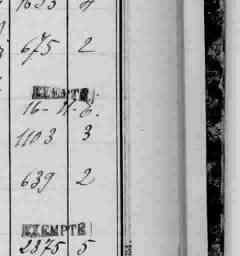 1633 4
675 2
EXEMPTE
16-11-6.
1103 3
639 2
EXEMPTE
2375 5